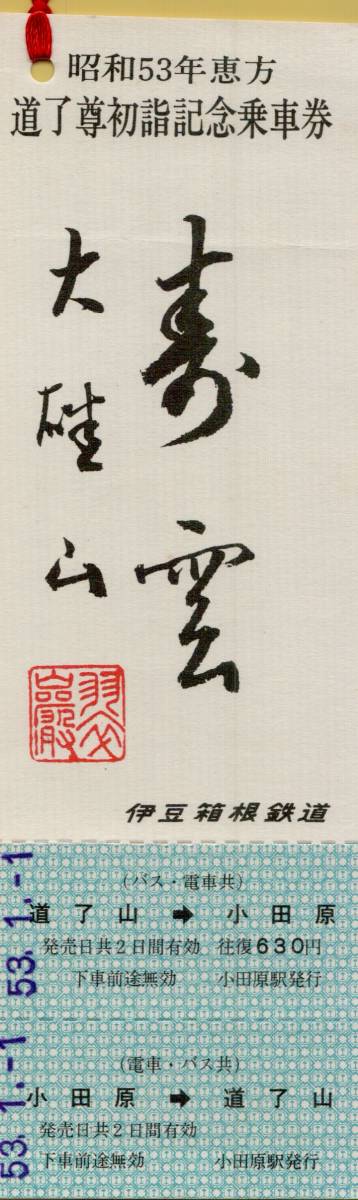 昭和53年恵方
道了尊初詣記念乗車券
寿雲
大雄山
伊豆箱根鉄道
53.1.-1
(バス・電車共)
道了山 ➡ 小田原
発売日共2日間有効 往復630円
下車前途無効 小田原駅発行
53.1.-1
(電車・バス共)
小田原 ➡ 道了山
発売日共2日間有効
下車前途無効 小田原駅発行